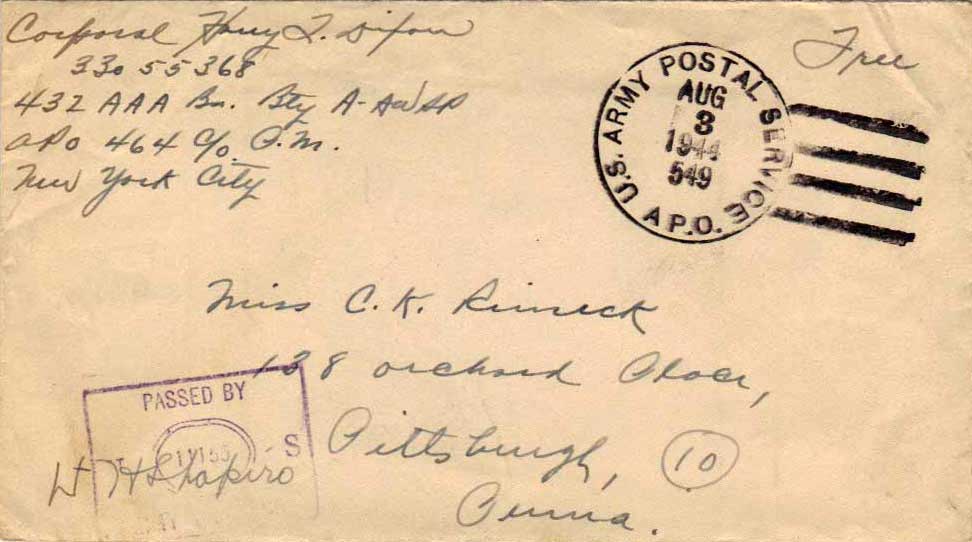 Corporal Harry L. Dixon
330 55368
432 AAA Bn. Bty A-AW SP
APO 464 c/o P.M.
New York City
Free
U.S. ARMY POSTAL SERVICE
AUG
3
1944
549
A.P.O.
Miss C. K. Rimeck
138 Orchard Place,
Pittsburgh, 10
Penna.
PASSED BY
S
Lt H Shapiro